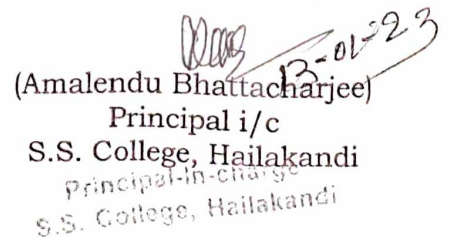 13-01-23
(Amalendu Bhattacharjee)
Principal i/c
S.S. College, Hailakandi
Principal-in-charge
S.S. College, Hailakandi